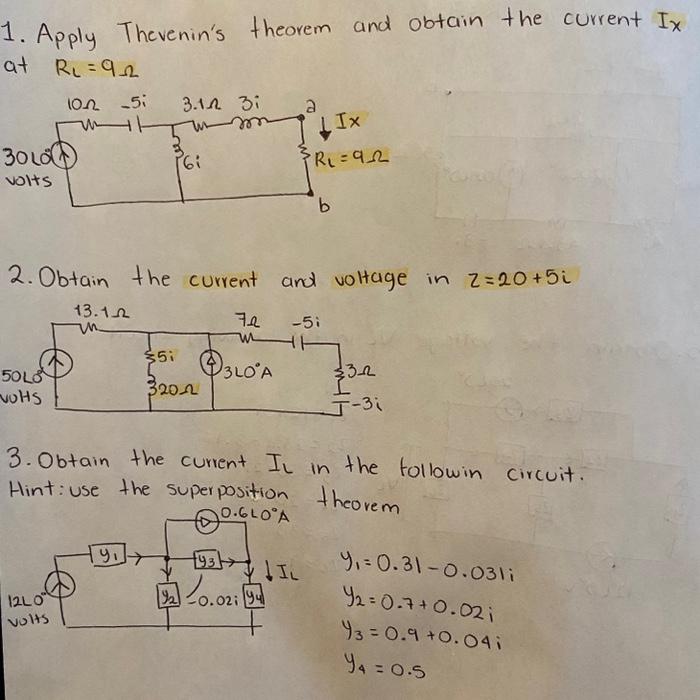 1. Apply Thevenin's theorem and obtain the current Ix
at RL = 9Ω
10Ω -5i 3.1Ω 3i a
↓ Ix
30∟0°
volts
6i
RL = 9Ω
b
2. Obtain the current and voltage in Z = 20+5i
13.1Ω
7Ω -5i
50∟0°
volts
5i
20Ω
3∟0°A
3Ω
-3i
3. Obtain the current IL in the followin circuit.
Hint: use the superposition theorem
0.6∟0°A
y1 y3 ↓ IL
12∟0°
volts
y2 -0.02i y4
y1 = 0.31 - 0.031i
y2 = 0.7 + 0.02i
y3 = 0.9 + 0.04i
y4 = 0.5